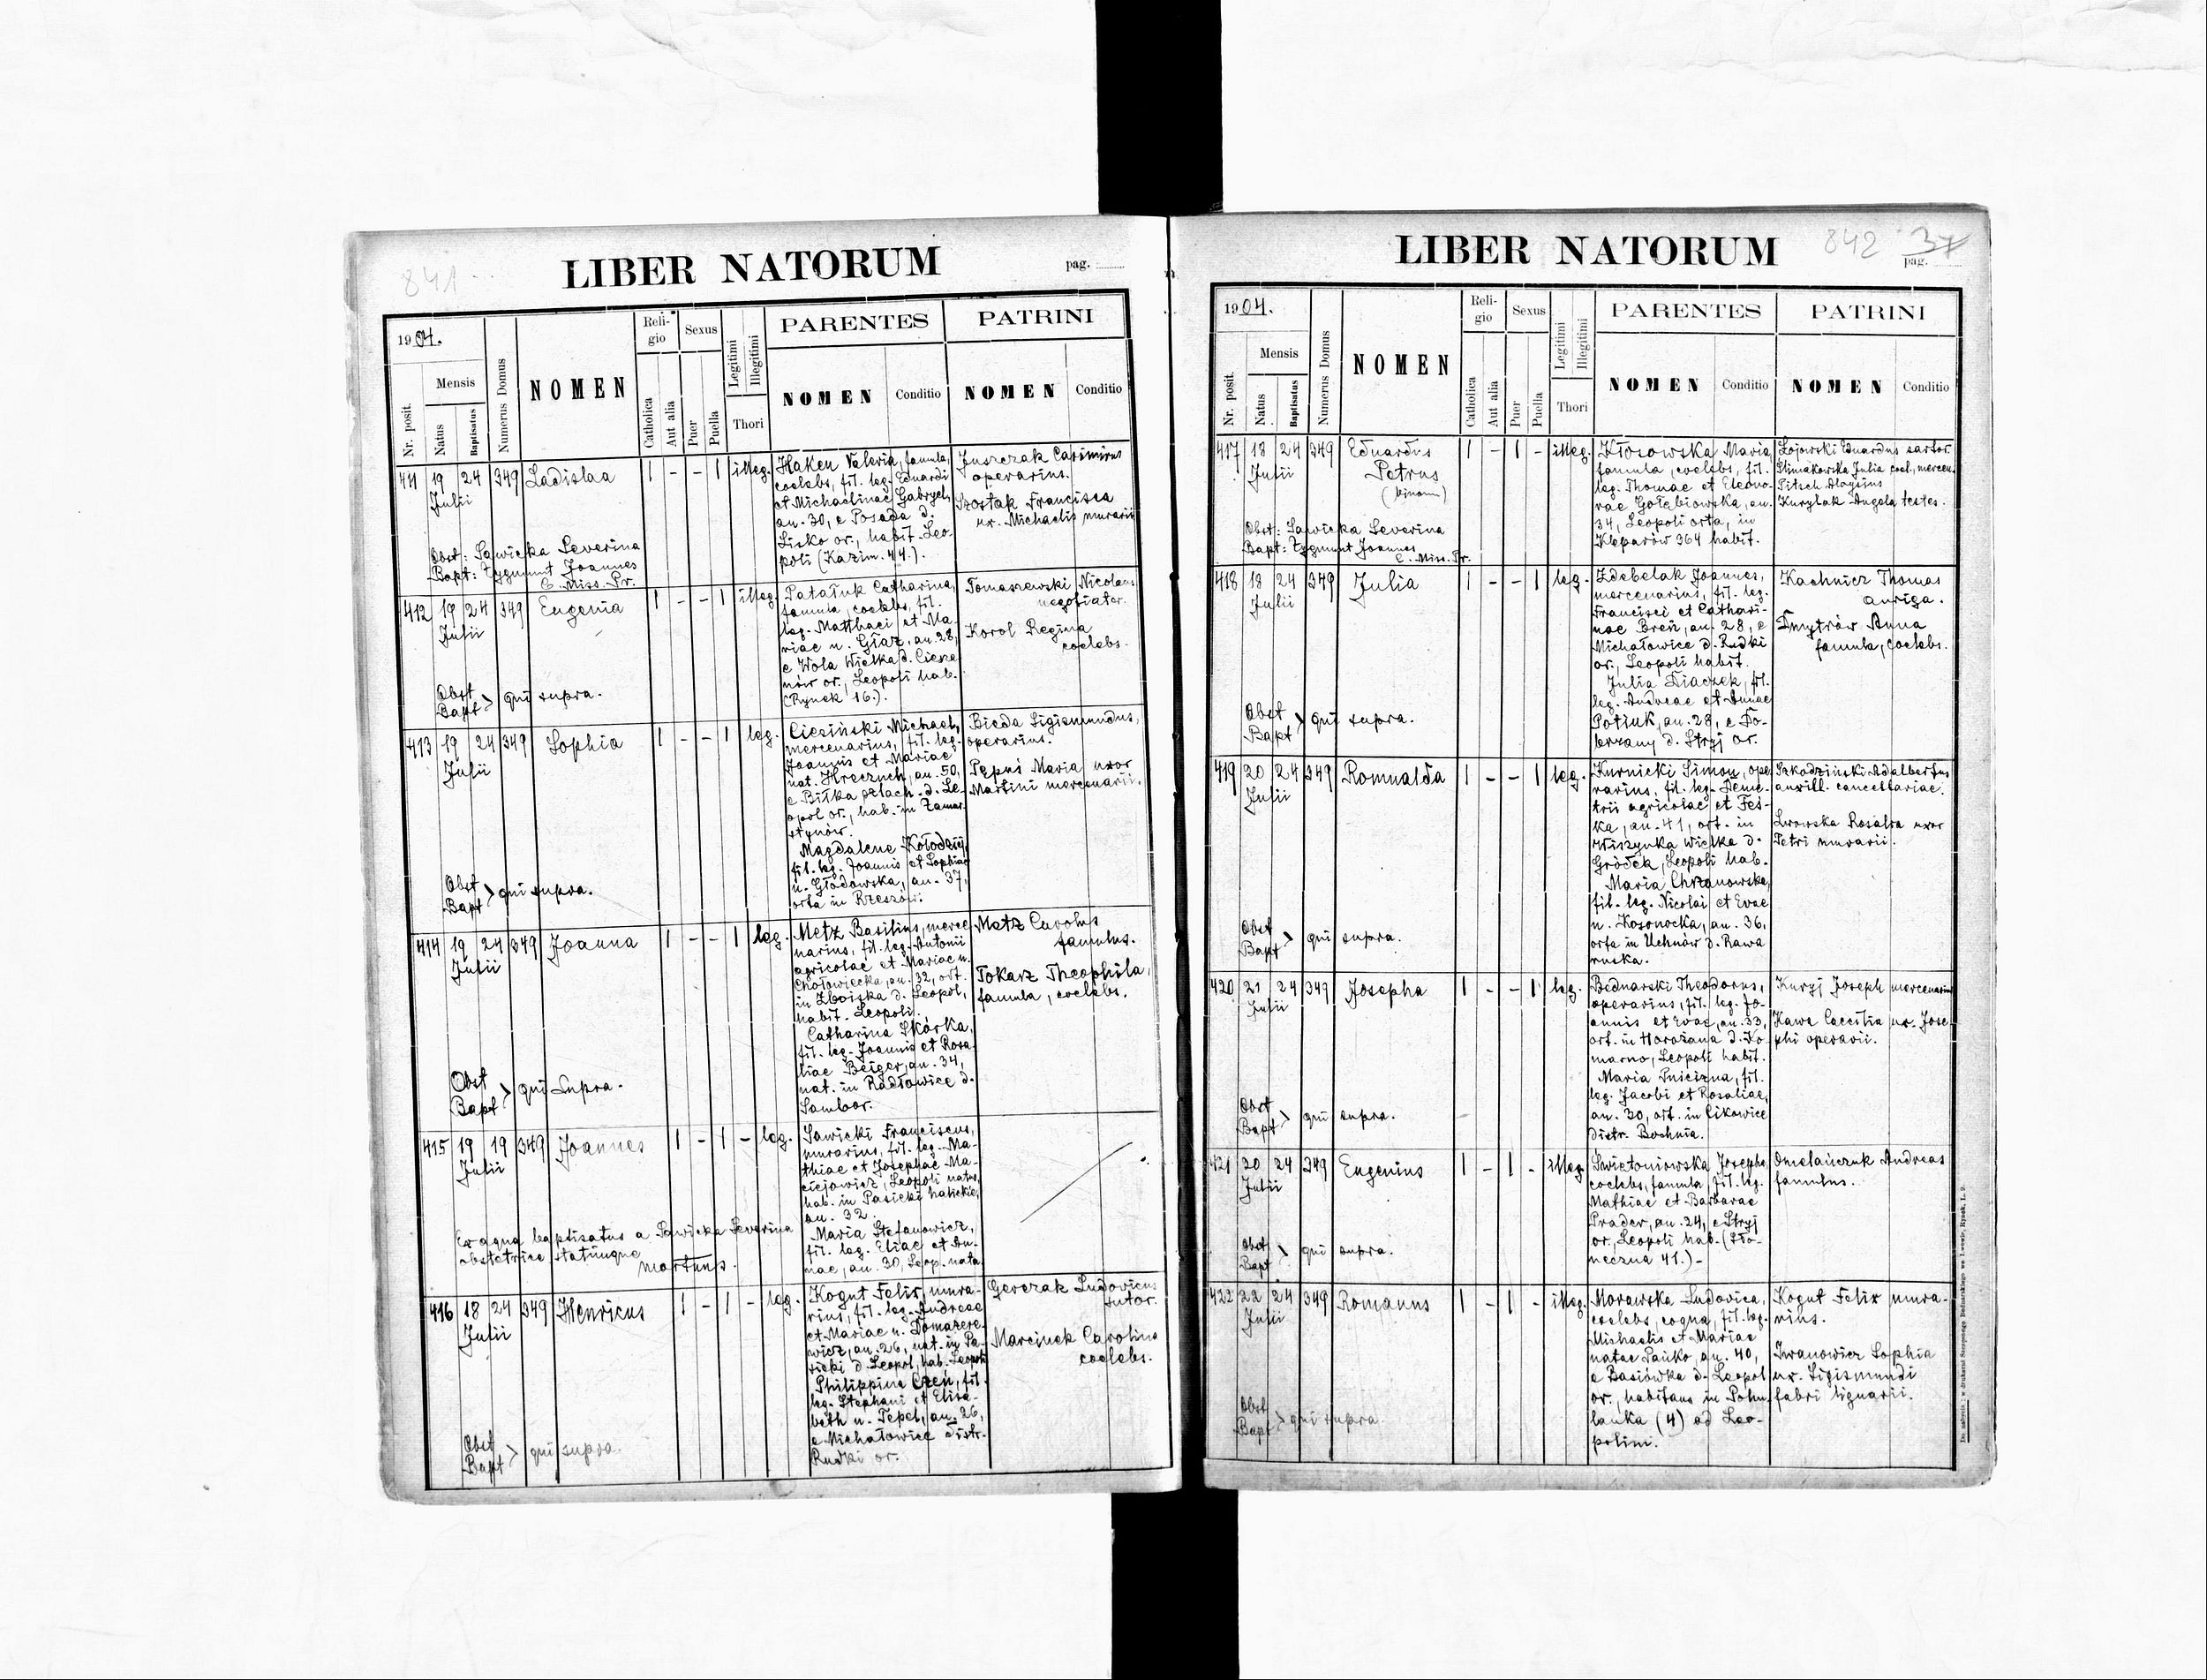 841
LIBER NATORUM
pag.
1904.
Nr. posit.
Mensis
Natus
Baptisatus
Numerus Domus
NOMEN
Reli-
gio
Catholica
Aut alia
Sexus
Puer
Puella
Legitimi
Illegitimi
Thori
PARENTES
NOMEN
Conditio
PATRINI
NOMEN
Conditio
411 19 24 349 Ladislaa 1 - - 1 illeg.
Julii
Haken Valeria, famula,
coelebs, fil. leg. Eduardi
et Michaelinae Gabrych,
an. 30, e Posada d.
Lisko or., habit. Leo-
poli (Kazim. 44.).
Juszczak Casimirus
operarius.
Szostak Francisca
ux. Michaelis murarii
Obst: Sawicka Severina
Bapt: Zygmunt Joannes
C. Miss. Pr.
412 19 24 349 Eugenia 1 - - 1 illeg.
Julii
Patałuk Catharina,
famula, coelebs, fil.
leg. Matthaei et Ma-
riae n. Głaz, an. 28,
e Wola Wielka d.Ciesza-
nów or., Leopoli hab.
(Rynek 16.).
Tomaszewski Nicolaus
negotiator.
Korol Regina
coelebs.
Obst
Bapt > qui supra.
413 19 24 349 Sophia 1 - - 1 leg.
Julii
Ciesiński Michael,
mercenarius, fil. leg.
Joannis et Mariae
nat. Hreczuch, an. 50,
e Biłka szlach. d. Le-
opol or., hab. in Zamar-
stynów.
Magdalene Kołodziej,
fil. leg. Joannis et Sophiae
n. Głodowska, an. 37,
orta in Rzeszów.
Bieda Sigismundus,
operarius.
Pępuś Maria uxor
Martini mercenarii.
Obst
Bapt > qui supra.
414 19 24 349 Joanna 1 - - 1 leg.
Julii
Metz Basilius, merce
narius, fil. leg. Antonii
agricolae et Mariae n.
Chołowiecka, an. 32, ort.
in Zboiska d. Leopol,
habit. Leopoli.
Catharina Skórka,
fil. leg. Joannis et Rosa-
liae Beiger, an. 34,
nat. in Radłowice d.
Sambor.
Metz Carolus
famulus.
Tokarz Theophila,
famula, coelebs.
Obst
Bapt > qui supra.
415 19 19 349 Joannes 1 - 1 - leg.
Julii
Sawicki Franciscus,
murarius, fil. leg. Ma-
thiae et Josephae Ma-
ciejowicz, Leopoli natus,
hab. in Pasieki halickie,
an. 32.
Maria Stefanowicz,
fil. leg. Eliae et An-
nae, an. 30, Leop. nata.
Ex aqua baptisatus a Sawicka Severina
obstetrice statimque
mortuus.
416 18 24 349 Henricus 1 - 1 - leg.
Julii
Kogut Felix, mura-
rius, fil. leg. Andreae
et Mariae n. Domazere-
wicz, an. 26, nat. in Pa-
sieki d. Leopol, hab. Leopoli
Philippina Czeń, fil.
leg. Stephani et Elisa-
beth n. Tepel, an. 26,
e Michałowice distr.
Rudki or.
Gerczak Ludovicus
sutor.
Marciuk Carolina
coelebs.
Obst
Bapt > qui supra.
842 37
LIBER NATORUM
pag.
1904.
Nr. posit.
Mensis
Natus
Baptisatus
Numerus Domus
NOMEN
Reli-
gio
Catholica
Aut alia
Sexus
Puer
Puella
Legitimi
Illegitimi
Thori
PARENTES
NOMEN
Conditio
PATRINI
NOMEN
Conditio
417 18 24 349 Eduardus 1 - 1 - illeg.
Julii
Petrus
(binom)
Kłosowska Maria,
famula, coelebs, fil.
leg. Thomae et Eleono-
rae Gołębiowska, an.
34, Leopoli orta, in
Kleparów 364 habit.
Łojowski Eduardus sartor.
Slimakowska Julia coel., mercen.
Pitsch Aloysius
Kurylak Angela testes.
Obst: Sawicka Severina
Bapt: Zygmunt Joannes
C. Miss. Pr.
418 18 24 349 Julia 1 - - 1 leg.
Julii
Zdebelak Joannes,
mercenarius, fil. leg.
Francisci et Cathari-
nae Breń, an. 28, e
Michałowice d. Rudki
or., Leopoli habit.
Julia Diaczek, fil.
leg. Andreae et Annae
Potiuk, an. 28, e Do-
brzany d. Stryj or.
Kachnicz Thomas
auriga.
Dmytrów Anna
famula, coelebs.
Obst
Bapt > qui supra.
419 20 24 349 Romualda 1 - - 1 leg.
Julii
Kurnicki Simon, ope
rarius, fil. leg. Deme-
trii agricolae et Feś-
ka, an. 41, ort. in
Wiszynka Wielka d.
Gródek, Leopoli hab.
Maria Chrzanowska,
fil. leg. Nicolai et Evae
n. Kosonocka, an. 36,
orta in Uchnów d. Rawa
ruska.
Szkodziński Adalbertus
auxill. cancellariae.
Lwowska Rosalia uxor
Petri murarii.
Obst
Bapt > qui supra.
420 21 24 349 Josepha 1 - - 1 leg.
Julii
Bednarski Theodorus,
operarius, fil. leg. Jo-
annis et Evae, an. 33,
ort. in Horożana d. Ko-
marno, Leopoli habit.
Maria Iniczna, fil.
leg. Jacobi et Rosaliae,
an. 20, ort. in Cikowice
distr. Bochnia.
Kuryj Joseph mercenarius
Kawa Caecilia ux. Jose-
phi operarii.
Obst
Bapt > qui supra.
421 20 24 349 Eugenius 1 - 1 - illeg.
Julii
Swiętoniowska Josepha,
coelebs, famula, fil. leg.
Mathiae et Barbarae
Prader, an. 24, e Stryj
or., Leopoli hab. (Sło-
neczna 41.)-
Omelańczuk Andreas
famulus.
Obst
Bapt > qui supra.
422 22 24 349 Romanus 1 - 1 - illeg.
Julii
Morawska Ludovica,
coelebs, coqua, fil. leg.
Michaelis et Mariae
natae Pańko, an. 40,
e Basiówka d. Leopol
or., habitans in Pohu-
lanka (4) ad Leo-
polim.
Kogut Felix mura-
rius.
Iwanowicz Sophia
ux. Sigismundi
fabri lignarii.
Obst
Bapt > qui supra.